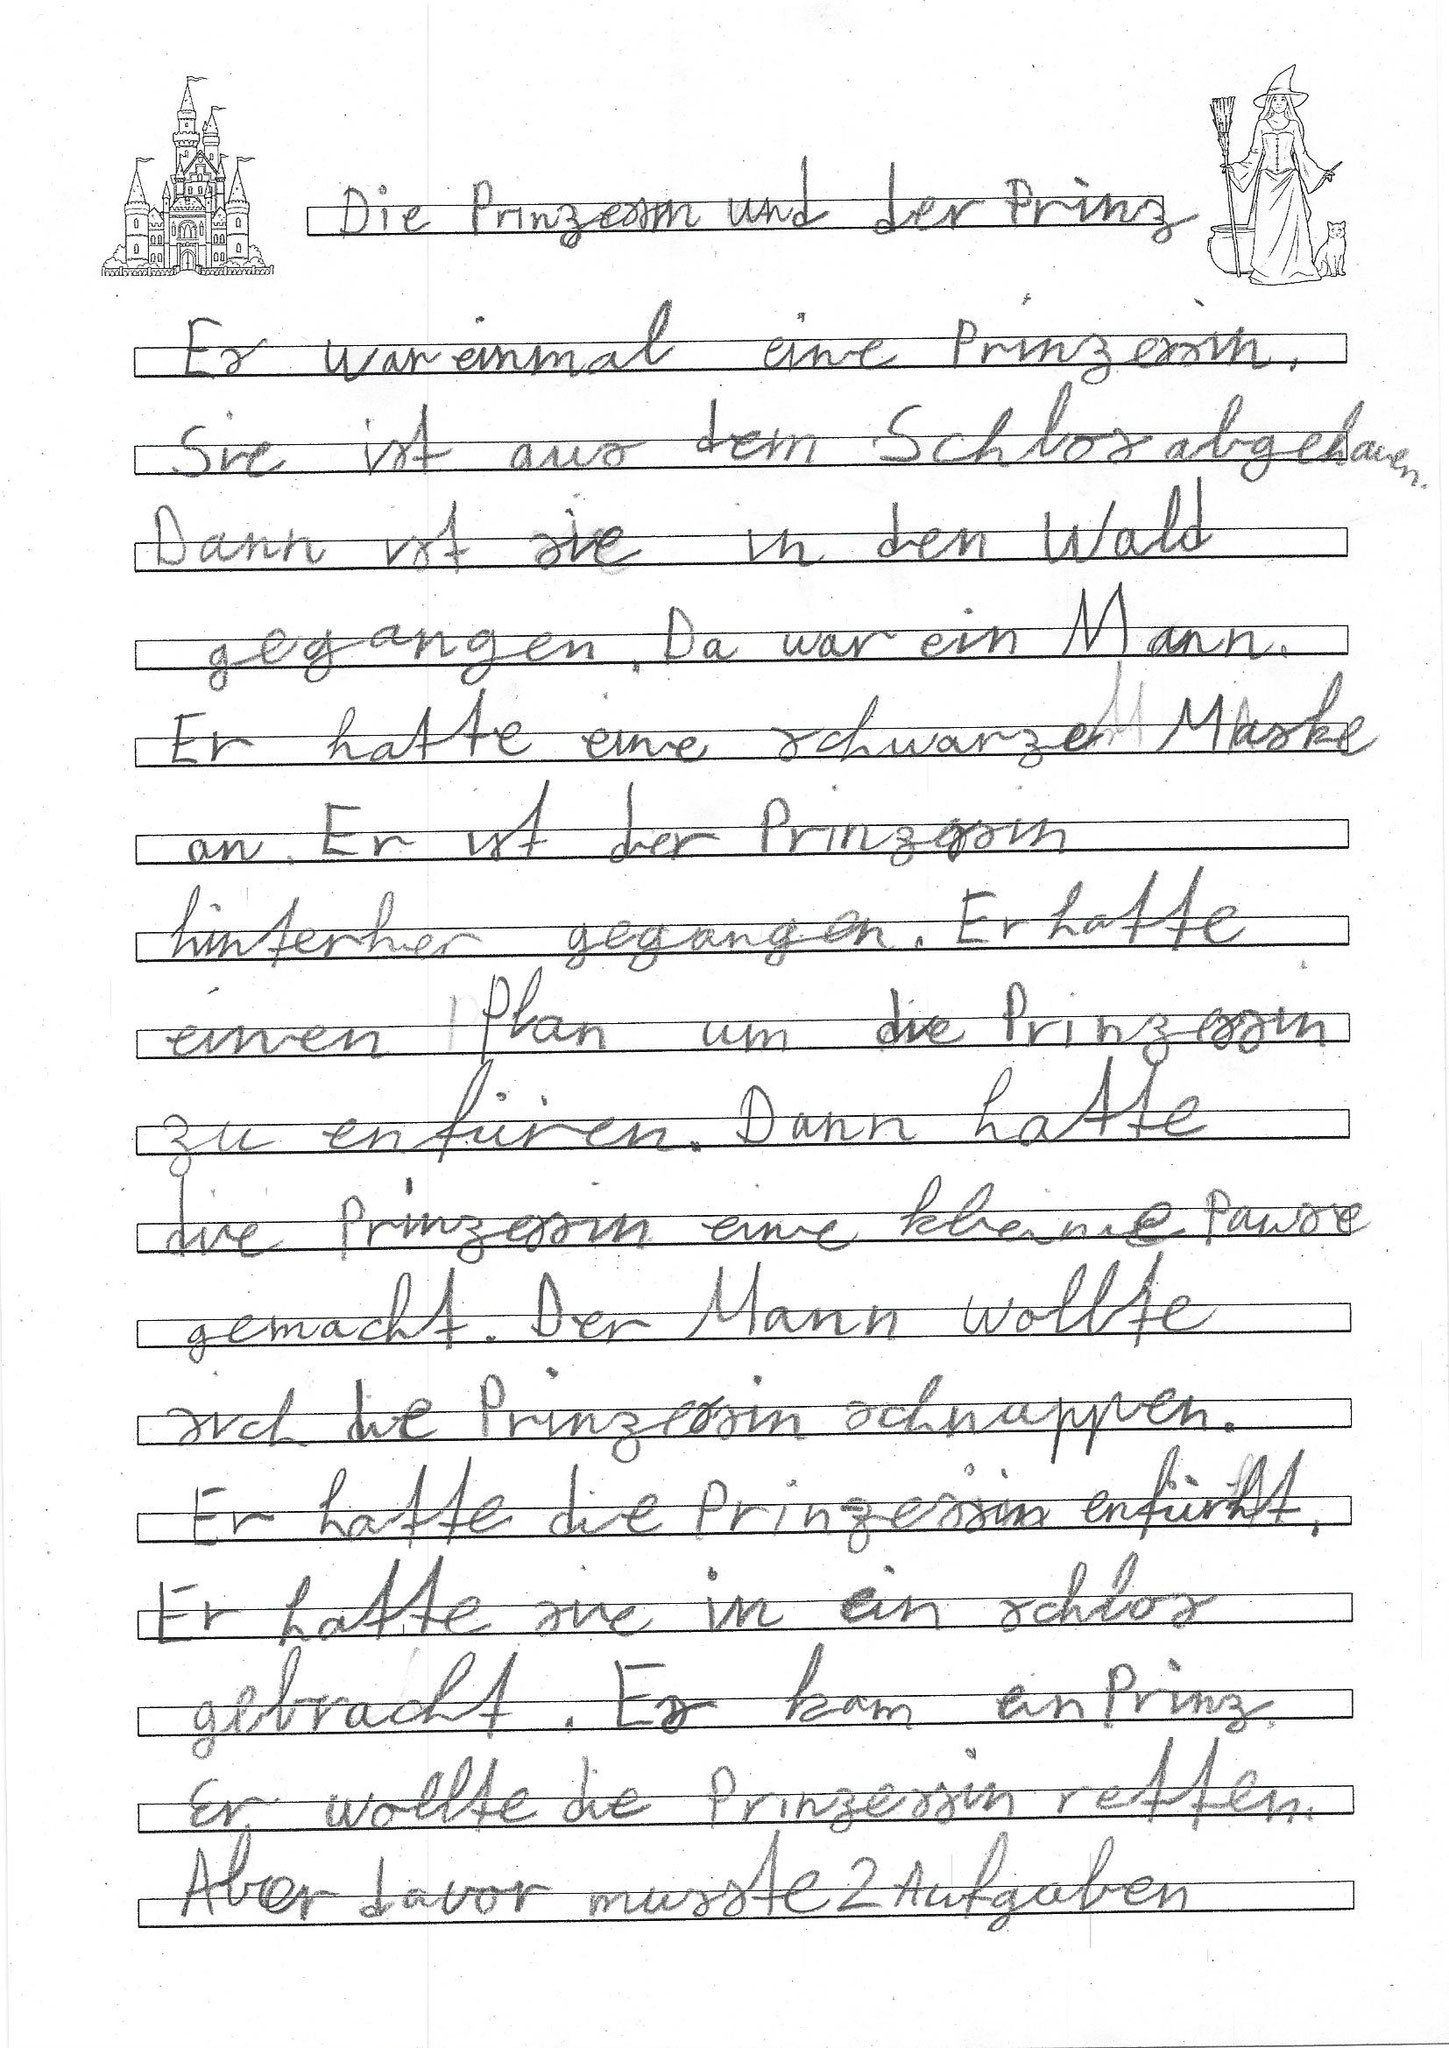 Die Prinzessin und der Prinz
Es war einmal eine Prinzessin.
Sie ist aus dem Schlos abgehauen.
Dann ist sie in den Wald
gegangen. Da war ein Mann.
Er hatte eine schwarze Maske
an. Er ist der Prinzessin
hinterher gegangen. Er hatte
einen Plan um die Prinzessin
zu enfüren. Dann hatte
die Prinzessin eine kleine Pause
gemacht. Der Mann wollte
sich die Prinzessin schnappen.
Er hatte die Prinzessin enfürht.
Er hatte sie in ein schlos
gebracht. Es kam ein Prinz.
Er wollte die Prinzessin retten.
Aber davor musste 2 Aufgaben